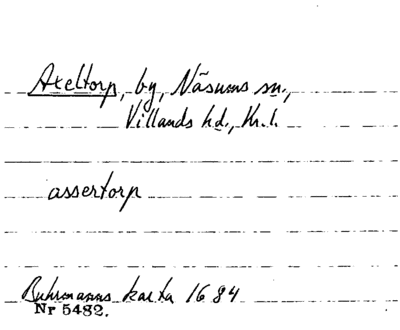 Axeltorp, by, Näsums sn.,
Villands hd., Kr. l.
assertorp
Buhrmanns karta 1684
Nr 5482.